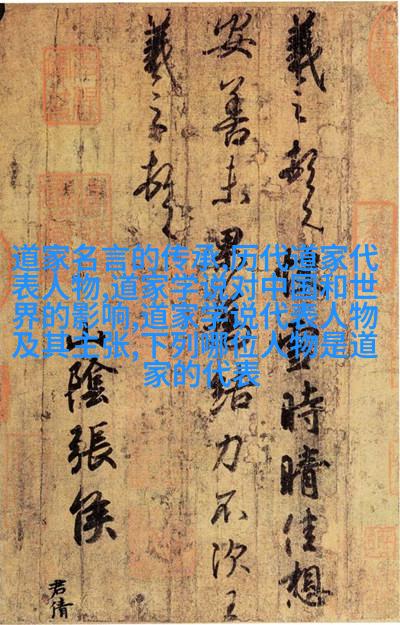 道家名言的传承,历代道家代
表人物,道家学说对中国和世
界的影响,道家学说代表人物
及其主张,下列哪位人物是道
家的代表
羲之頓首雪時晴佳想
安善未果結力不次王
羲之頓首
山陰張侯
君倩